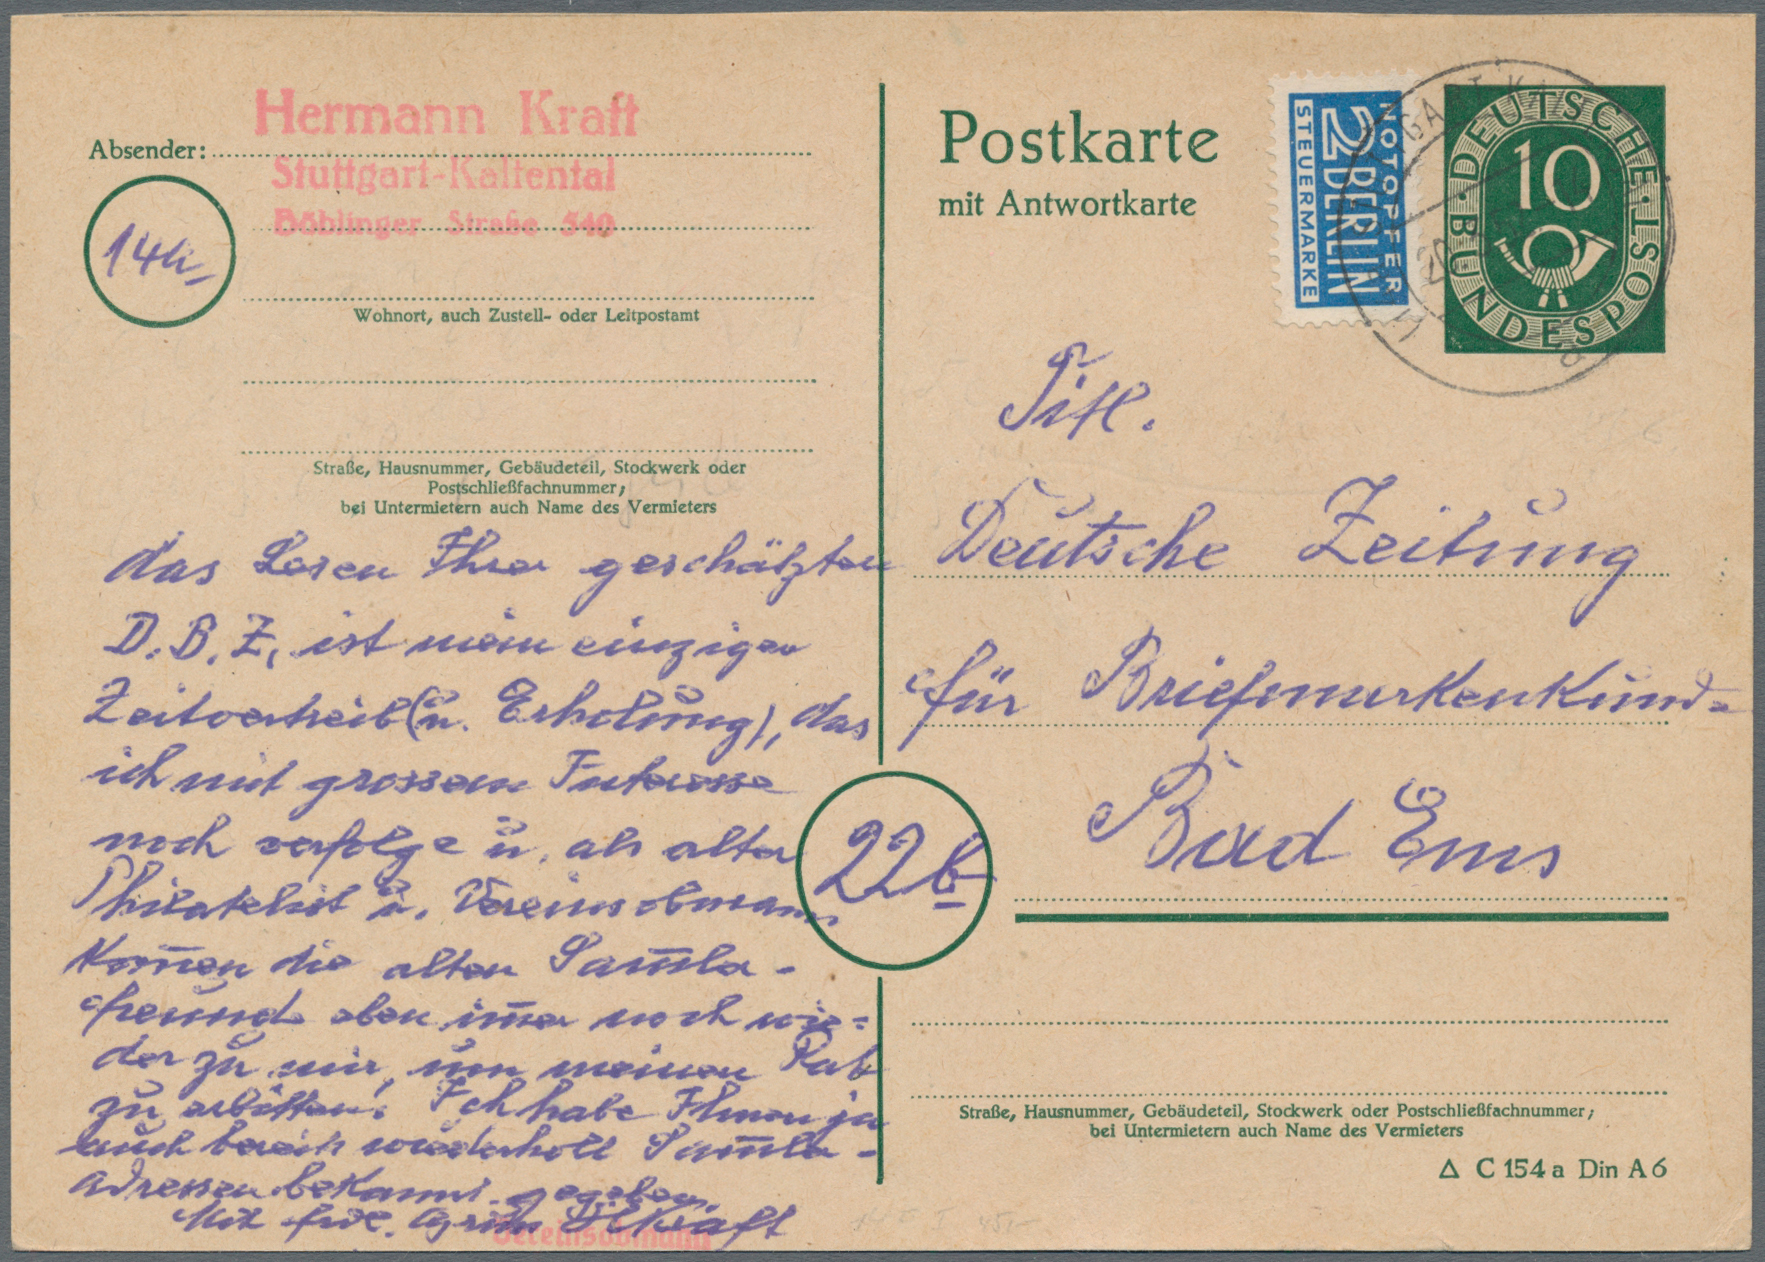 Hermann Kraft
Absender:
Stuttgart-Kaltental
Böblinger Straße 540
14a
Wohnort, auch Zustell- oder Leitpostamt
Straße, Hausnummer, Gebäudeteil, Stockwerk oder
Postschließfachnummer;
bei Untermietern auch Name des Vermieters
das Lesen Ihrer geschätzten
D.B.Z. ist mein einziger
Zeitvertreib (u. Erholung), das
ich mit grossem Interesse
noch verfolge u. als alter
Philatelist u. Vereinsobmann
kom̅en die alten Sam̅ler-
freunde eben im̅er noch wie=
der zu mir, um meinen Rat
zu erbitten! Ich habe Ihnen ja
auch bereits wiederholt Sam̅ler-
adressen bekannt gegeben.
Mit frdl. Gruss HKraft
Vereinsobmann
Postkarte
mit Antwortkarte
NOTOPFER
2 BERLIN
STEUERMARKE
DEUTSCHE BUNDESPOST
10
Titl.
Deutsche Zeitung
für Briefmarkenkund=
22b
Bad Ems
Straße, Hausnummer, Gebäudeteil, Stockwerk oder Postschließfachnummer;
bei Untermietern auch Name des Vermieters
Δ C 154 a Din A 6